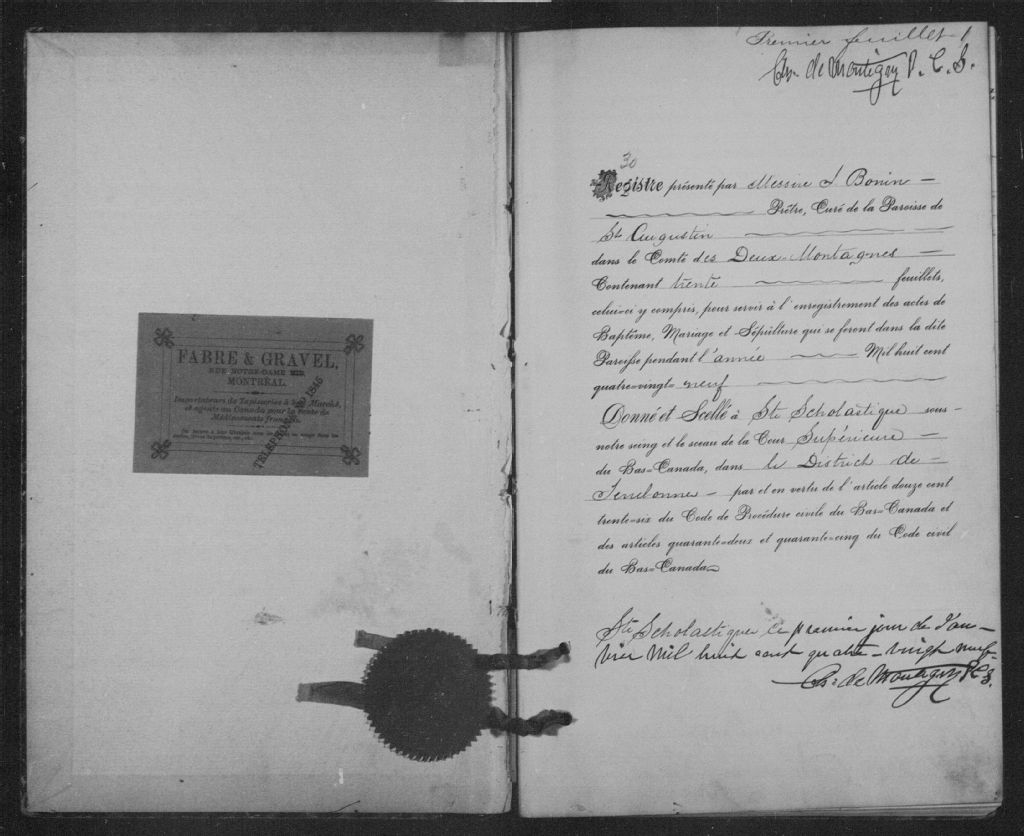 FABRE & GRAVEL,
RUE NOTRE-DAME
MONTREAL.
Importateurs de Tapisseries à Bon Marché,
et agents au Canada pour la vente de
Médicaments français.
TELEPHONE NO 1846
Premier feuillet 1
Ch. de Montigny P. C. S.
30
Registre présenté par Messire J Bonin
Prêtre, Curé de la Paroisse de
St Augustin
dans le Comté des Deux-Montagnes
Contenant trente feuillets,
celui-ci y compris, pour servir à l'enregistrement des actes de
Baptême, Mariage et Sépulture qui se feront dans la dite
Paroisse pendant l'année Mil huit cent
quatre-vingt neuf
Donné et Scellé à Ste Scholastique sous
notre seing et le sceau de la Cour Supérieure
du Bas-Canada, dans le District de
Terrebonne par et en vertu de l'article douze cent
trente-six du Code de Procédure civile du Bas-Canada et
des articles quarante-deux et quarante-cinq du Code civil
du Bas-Canada
Ste Scholastique ce premier jour de Jan-
vier Mil huit cent quatre-vingt neuf
Ch. de Montigny P.C.S.